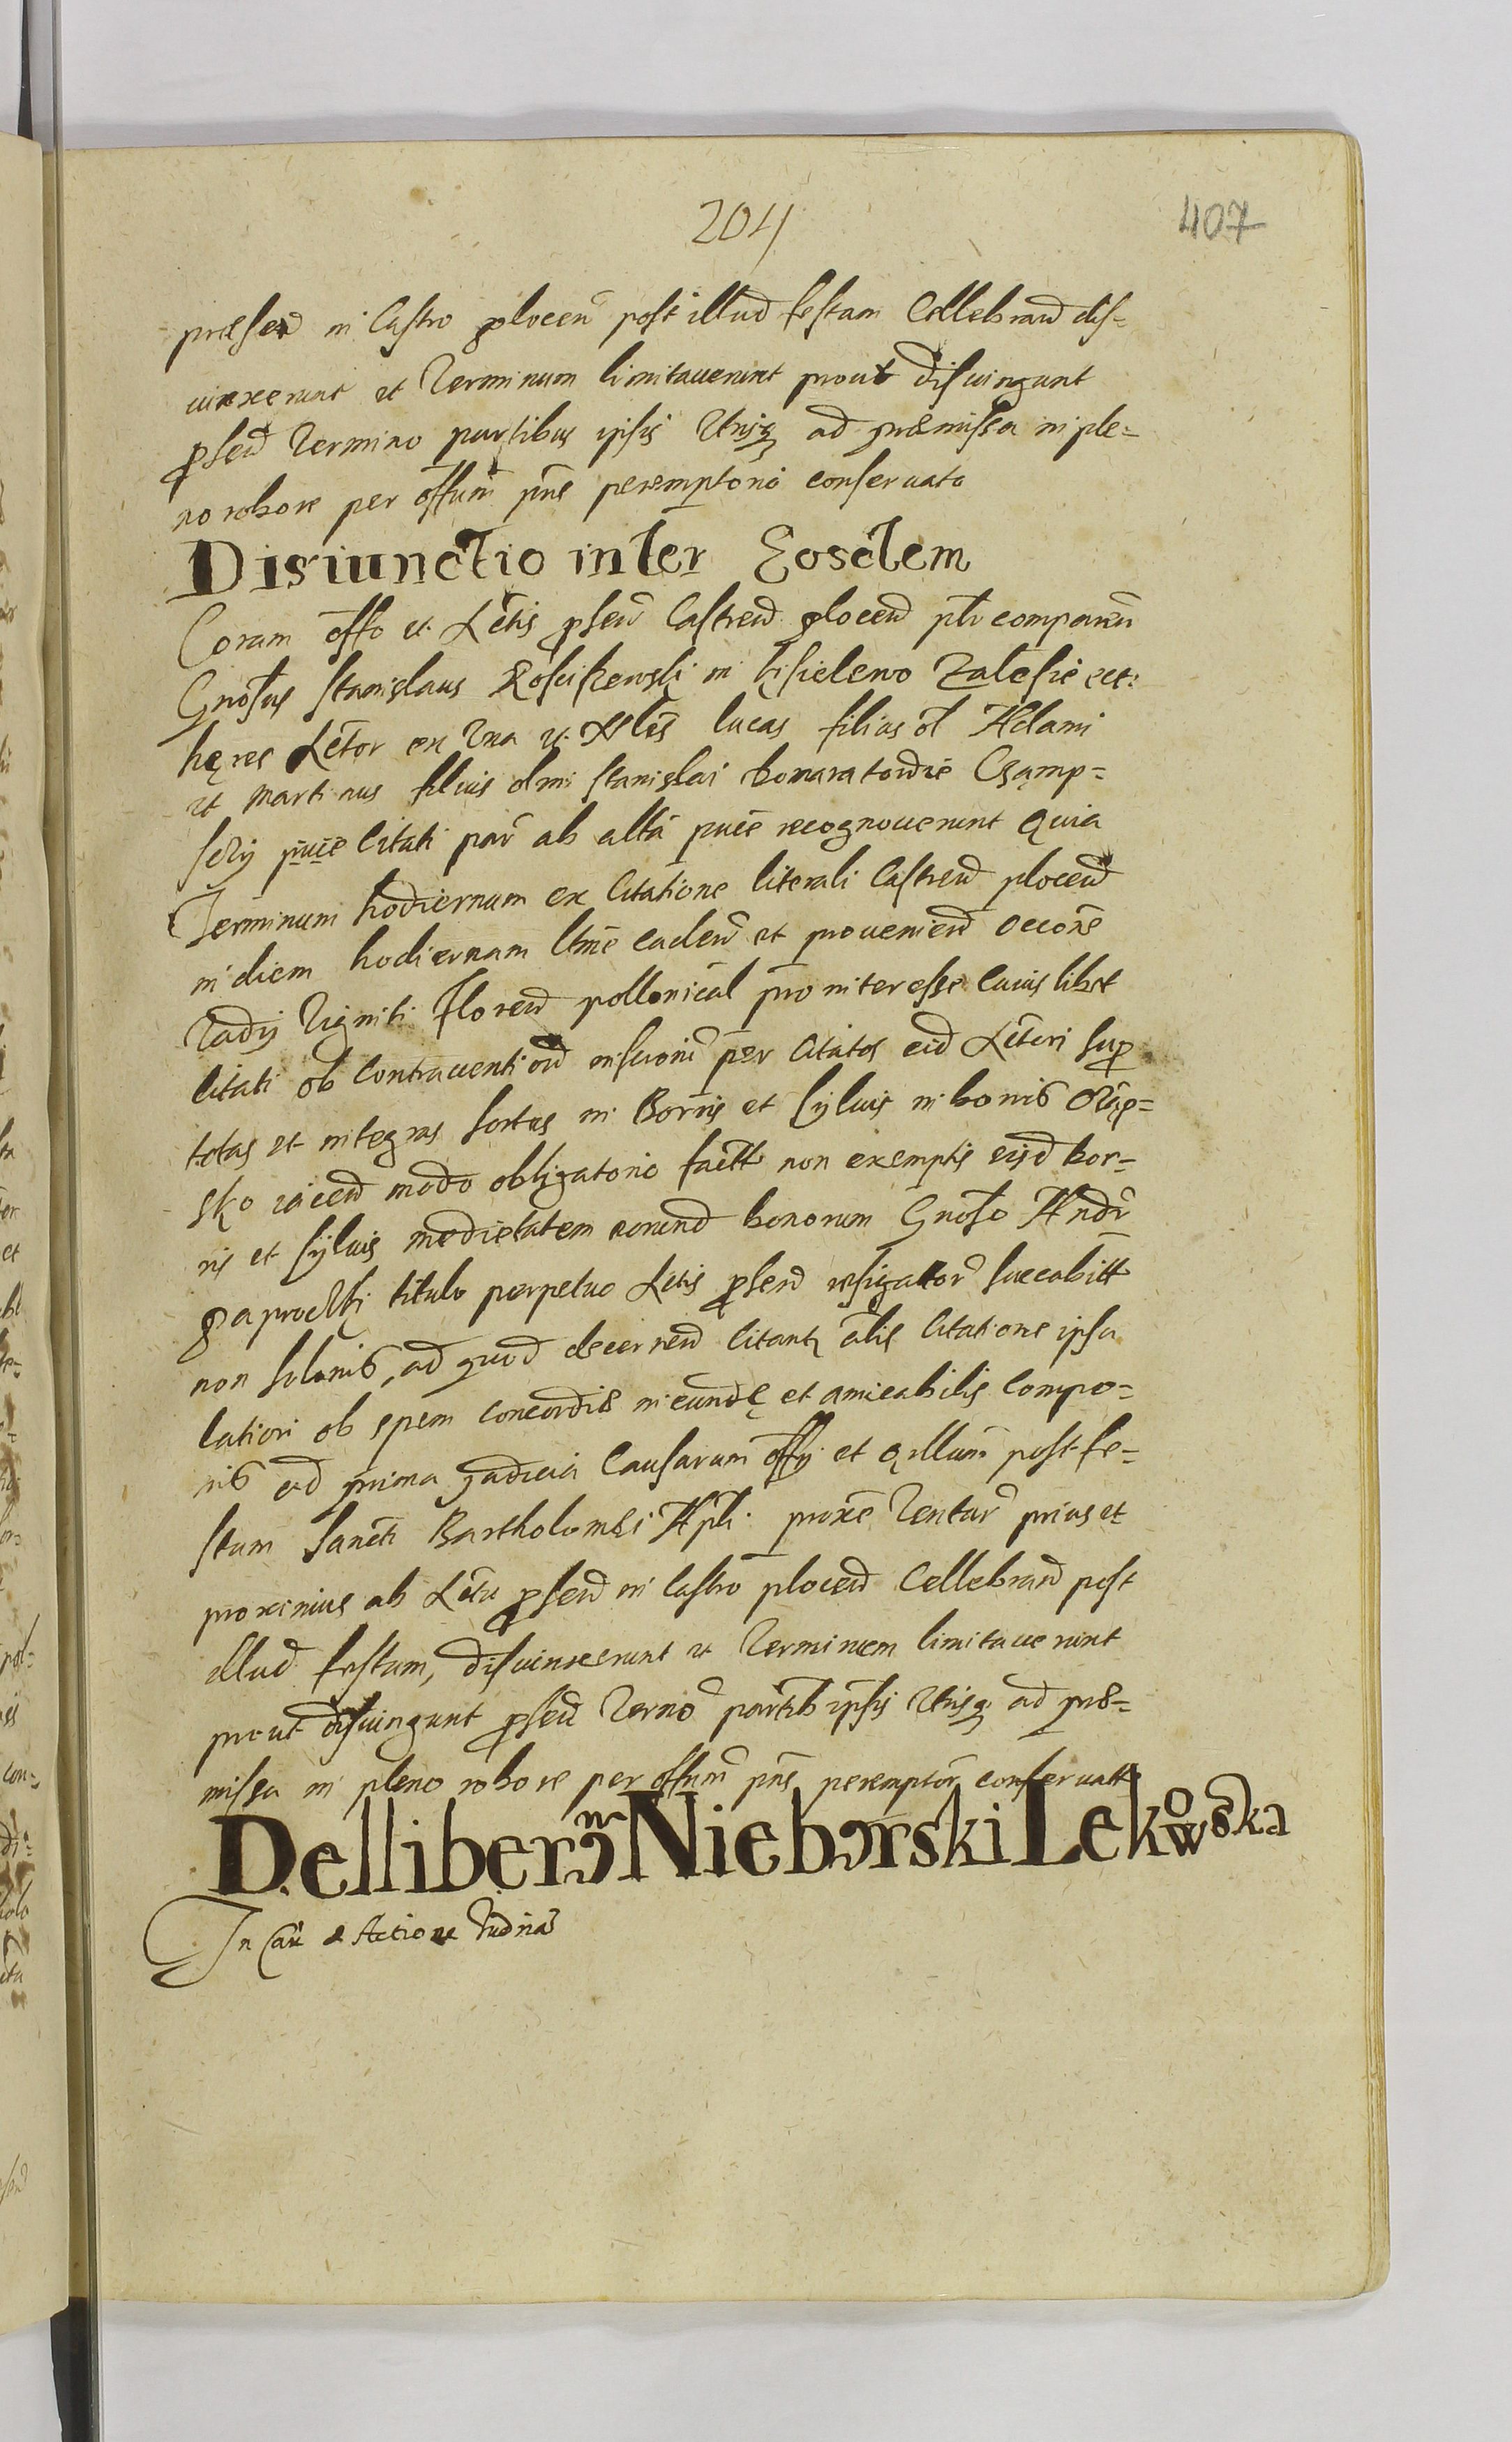 204
407
præsen in Castro plocen post illud festum Cellebrand dis-
iunxerunt et Terminum limitauerunt prout disiungunt
psen Termino partibus ipsis Utrisq ad præmissa in ple-
no robore per offum pns peremptorio conseruato
Disiunctio inter Eosdem
Coram offo et Actis psen Castren plocen plr comparen
Gnosus Stanislaus Kosciskowski in kisielewo Zalesie ect:
hęres Actor ex Una et Nbles lucas filius ol Adami
et Martinus filius olim Stanislai bonaratowie Cząmp-
scÿ citati par ab altā recognouerunt Quia
Terminum hodiernum ex Citatione literali Castren plocen
in diem hodiernam ltme caden et prouenien occoñe
Vadÿ Viginti Floren pollonical pro interesse cuiuslibet
citati ob contrauention inscrioni per Citatos eid Actori sup
totas et integras sortes in Borris et syluis in bonis
sko iacen modo obligatorio factt non exemptis eisd bor-
ris et syluis medietatem eorund bonorum Gnoso Andr
titulo perpetuo Actis psen resignator succubitt
non solonis, ad quod decernen citantr alis Citatione ipsa
latiori ob spem concordiæ ineundę et amicabilis compo-
nis ad prima Iudicia Causarum offÿ et qrllum post fe-
stum Sancti Bartholomei Apli proxe Ventur prius et
proximius ab Actu psen in Castro plocen Cellebrand post
illud festum, disiunxerunt et Terminum limitauerunt
prout disiungunt psen Terno partib ipsis Utrisq ad præ-
missa in pleno robore per offum pns peremptor conseruatt
Delliberom Nieborski Lekowska
In Cau et Actione